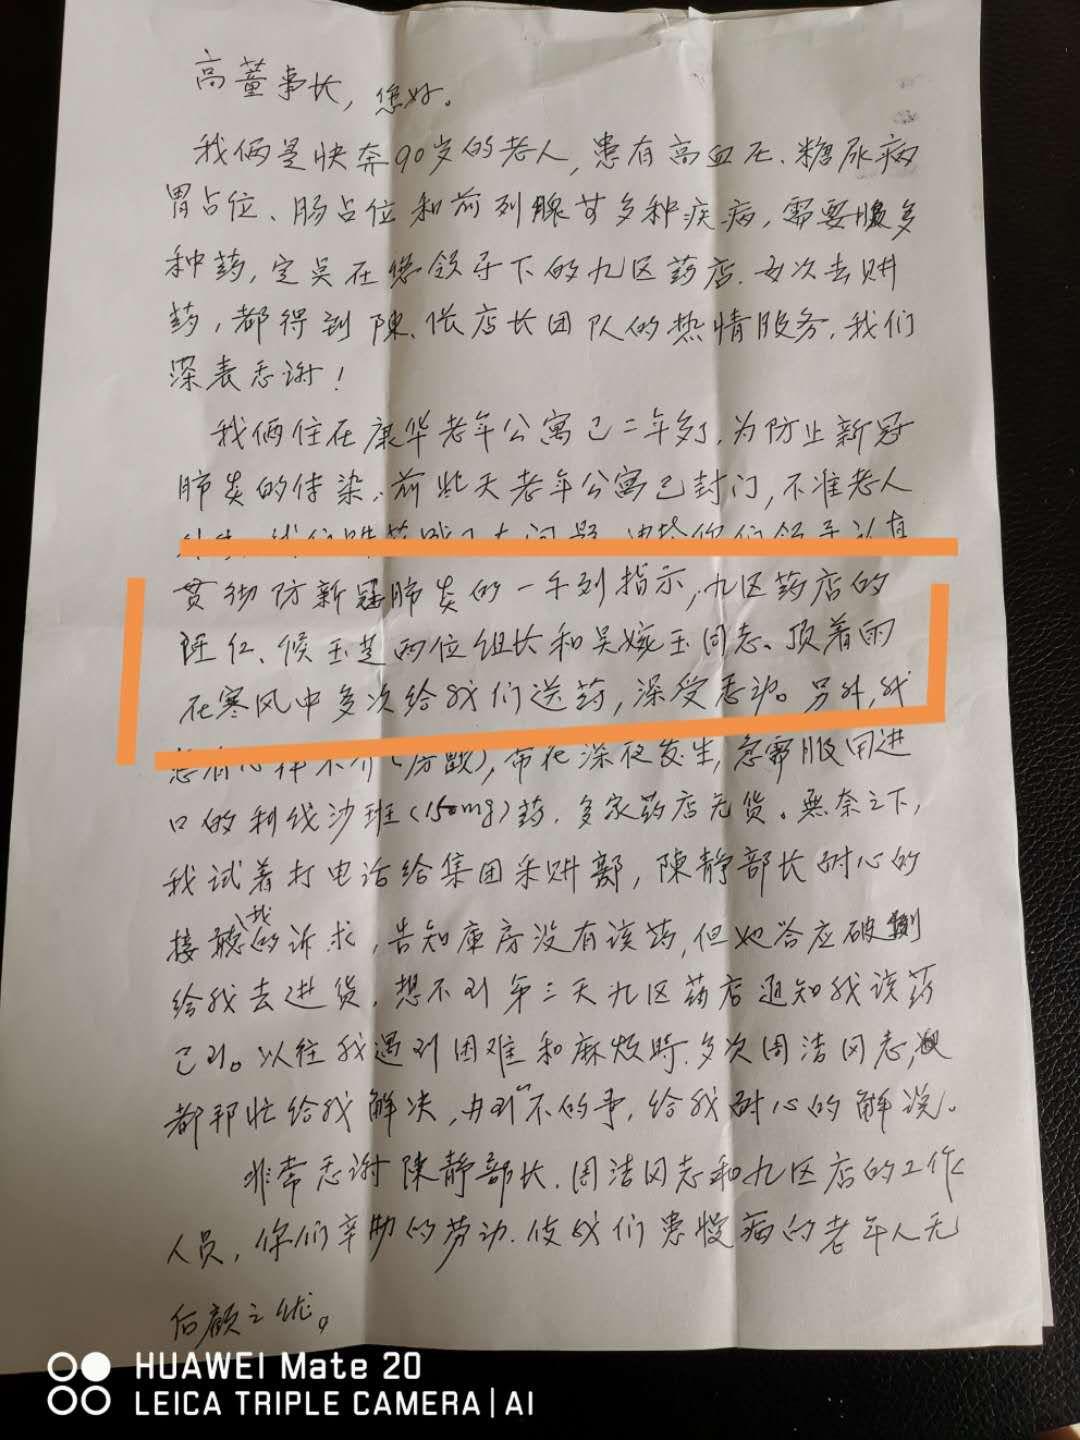 高董事长，您好。
我俩是快奔90岁的老人，患有高血压、糖尿病
胃占位、肠占位和前列腺等多种疾病，需要服多
种药，定点在您领导下的九区药店。每次去购
药，都得到陳、张店长团队的热情服务，我们
深表感谢！
我俩住在康华老年公寓已二年多了，为防止新冠
肺炎的传染，前些天老年公寓已封门，不准老人
外出，我们购药成了大问题，由于你们领导认真
贯彻防新冠肺炎的一系列指示，九区药店的
红、候玉芝两位组长和吴嫁玉同志、顶着雨
在寒风中多次给我们送药，深受感动。另外，我
患有心律不齐(房颤)，常在深夜发生，急需服用进
口的利伐沙班(150mg)药，多家药店无货。無奈之下，
我试着打电话给集团采购部，陳静部长耐心的
接聽我的诉求，告知庫房没有该药，但她答应破例
给我去进货，想不到第三天九区药店通知我该药
已到。以往我遇到困难和麻烦時，多次周洁同志，
都帮忙给我解决，办到不的事，给我耐心的解说。
非常感谢陳静部长、周洁同志和九区店的工作
人员，你们辛勤的劳动，使我们患慢病的老年人无
后顾之忧。
HUAWEI Mate 20
LEICA TRIPLE CAMERA | AI